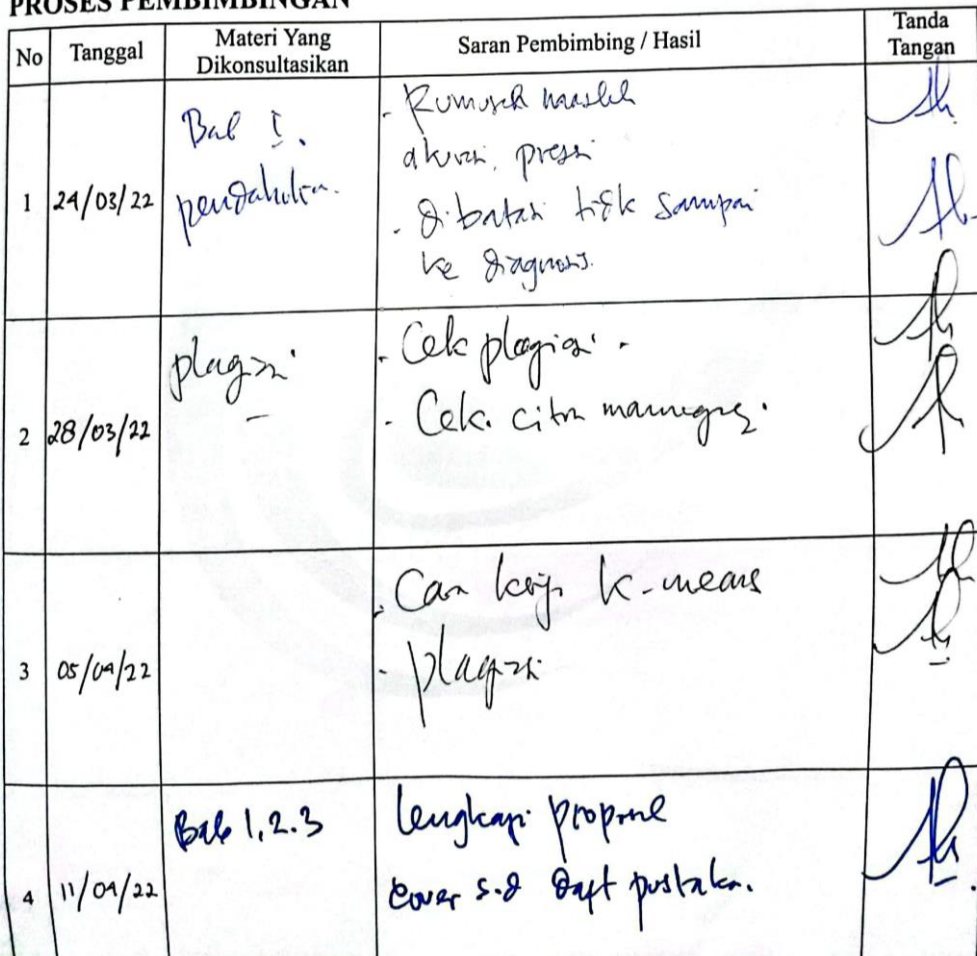 PROSES PEMBIMBINGAN
No Tanggal Materi Yang Dikonsultasikan Saran Pembimbing / Hasil Tanda Tangan
1 24/03/22
Bab I.
pendahulan.
- Rumusah maslah
akurasi, presisi
- dibatasi tidk sampai
ke diagnosis.
2 28/03/22
plagiasi
- Cek plagiasi.
- Cek. citra
3 05/04/22
- Cara kerja k-means
- plagiasi
4 11/04/22
Bab 1, 2. 3
lengkapi
cover s.d daft pustaka.